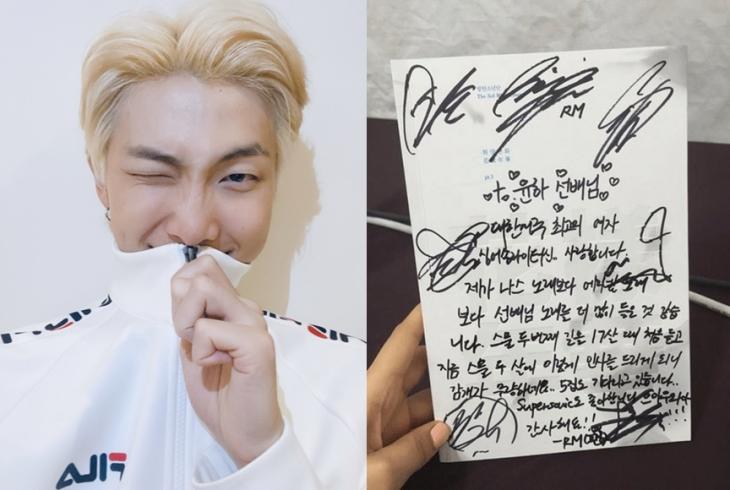 FILA
방탄소년단
The 3rd
RM
화양연화
pt.1
to. 윤하 선배님
대한민국 최고의 여자
싱어송라이터신.. 사랑합니다.
제가 나스 노래보다 에미넴 노래
보다 선배님 노래를 더 많이 들은 것 같습
니다. 스물 두번째 길은 17살 때 처음 듣고
지금 스물 두 살에 이렇게 인사를 드리게 되니
감개가 무량하네요.. 5집도 기다리고 있습니다..
Supersonic도 좋아합니다
감사해요!!
-RM